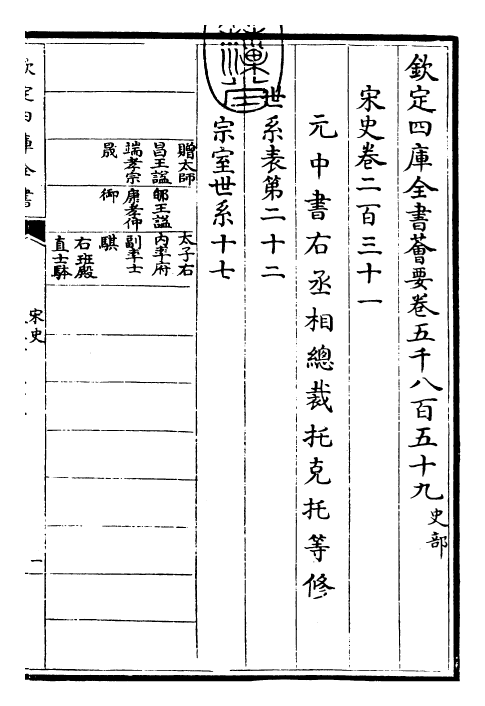 欽定四庫全書薈要卷五千八百五十九 史部
宋史卷二百三十一
元中書右丞相總裁托克托等修
世系表第二十二
宗室世系十七
贈太師
昌王謚
端孝宗
晟
郇王謚
康孝仲
御
太子右
内率府
副率士
騏
右班殿
直士
欽定四庫全書
宋史
一